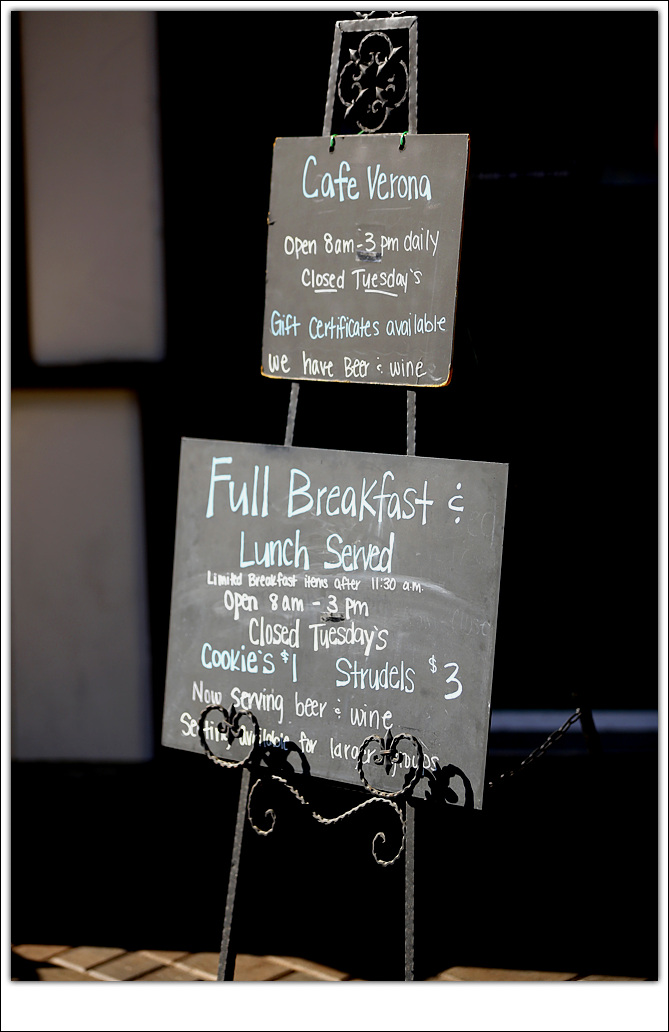 Cafe Verona
Open 8am-3pm daily
Closed Tuesday's
Gift certificates available
We have Beer & wine
Full Breakfast &
Lunch Served
Limited Breakfast items after 11:30 a.m.
Open 8am - 3pm
Closed Tuesday's
Cookie's $1 Strudels $3
Now serving beer & wine
available for larger groups